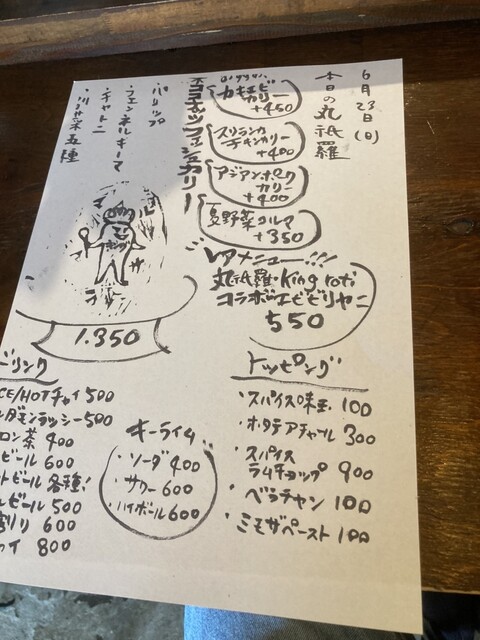 6月23日(日)
本日の丸祇羅
カキチビ
カリー
+450
スリランカ
チキンカリー
+400
アジアンポーク
カリー
+400
夏野菜コルマ
+350
ココナッツフィッシュカリー
・パリップ
・フェンネルキーマ
・チャトニ
・川菜五種
マ
サ
ラ
1.350
レアメニュー!!!
丸祇羅・King roti
コラボエビビリヤニ
550
ドリンク
ICE/HOTチャイ 500
ルダモンラッシー 500
ロン茶 400
ビール 600
トビール 各種!
ルビール 500
割り 600
ワイ 800
キーライム
・ソーダ 400
・サワー 600
・ハイボール 600
トッピング
・スパイス味玉 100
・ホタテアチャール 300
・スパイス
ラムチョップ 900
・ベラチャン 100
・ミモザペースト 100